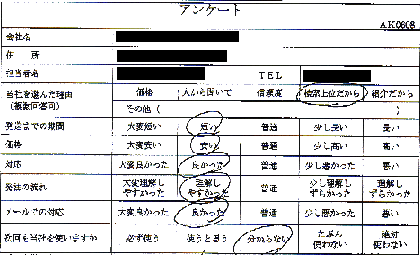 アンケート
AK0608
会社名
住　所
担当者名 TEL
当社を選んだ理由 価格 人から聞いて 信頼度 検索上位だから 紹介だから
(複数回答可) その他(
発送までの期間 大変短い 短い 普通 少し長い 長い
価格 大変安い 安い 普通 少し高い 高い
対応 大変良かった 良かった 普通 少し悪かった 悪い
発注の流れ 大変理解しやすかった 理解しやすかった 普通 少し理解しずらかった 理解しずらかった
メールでの対応 大変良かった 良かった 普通 少し悪かった 悪い
次回も当社を使いますか 必ず使う 使うと思う 分からない たぶん使わない 絶対使わない